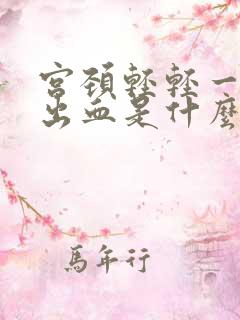 宮頚輕輕一
出血是什麼
馬年行